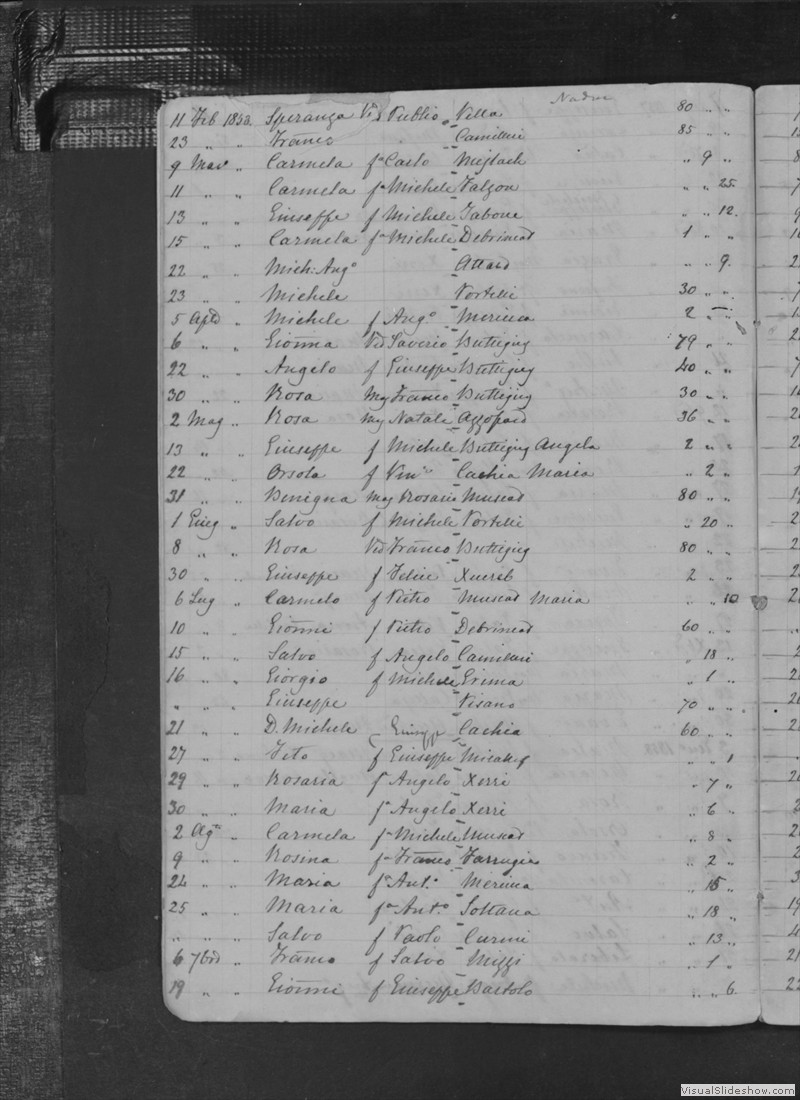 Nadur
11 Feb 183 Speranza Va Publio Vella 80 " "
23 " " Franco Camilleri 85 " "
9 Mar " Carmela fa Carlo Mejlach " 9 "
11 " " Carmela fa Michele Falzon " " 25
13 " " Giuseppe f Michele Tabone " " 12.
15 " " Carmela fa Michele Debrincat 1 " "
22 " " Mich: Ango Attard " " 9.
23 " " Michele Portelli 30 " "
5 Aple " Michele f Ango Meriuca 2 " "
6 " " Gionna Vid Saverio Buttigieg 79 " "
22 " " Angelo f Giuseppe Buttigieg 40 " "
30 " " Rosa Mog Franco Buttigieg 30 " "
2 Mag " Rosa mog Natale Azzopard 36 " "
13 " " Giuseppe f Michele Buttigieg Angela 2 " "
22 " " Orsola f Vin Cachia Maria " 2 "
31 " " Benigna mog Rosario Muscat 80 " "
1 Giug " Salvo f Michele Portelli " 20 "
8 " " Rosa Vid Franco Buttigieg 80 " "
30 " " Giuseppe f Felice Xuereb 2 " "
6 Lug " Carmelo f Pietro Muscat Maria " " 10
10 " " Gionni f Pietro Debrincat 60 " "
15 " " Salvo f Angelo Camilleri " 18 "
16 " " Giorgio f Michele Grima " 1 "
" " " Giuseppe Pisano 70 " "
21 " " D. Michele Giusepp Cachia 60 " "
27 " " Vito f Giuseppe Micalef " " 1
29 " " Rosaria fa Angelo Xerri " 7 "
30 " " Maria fa Angelo Xerri " 6 "
2 Ago " Carmela fa Michele Muscat " 8 "
9 " " Rosina fa Franco Farrugia " 2 "
24 " " Maria fa Anto Meriuca " 15 "
25 " " Maria fa Anto Soltana " 18 "
" " " Salvo f Paolo Curmi " 13 "
6 7bre " Franco f Salvo Mizzi " 1 "
19 " " Gionni f Giuseppe Bartolo " " 6
VisualSlideshow.com